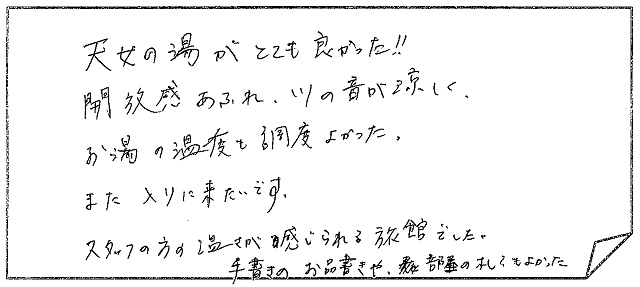 天女の湯がとても良かった!!
開放感あふれ、川の音が涼しく、
お湯の温度も調度よかった。
また入りに来たいです。
スタッフの方の温さが感じられる旅館でした。
手書きのお品書きや、部屋の札もよかった